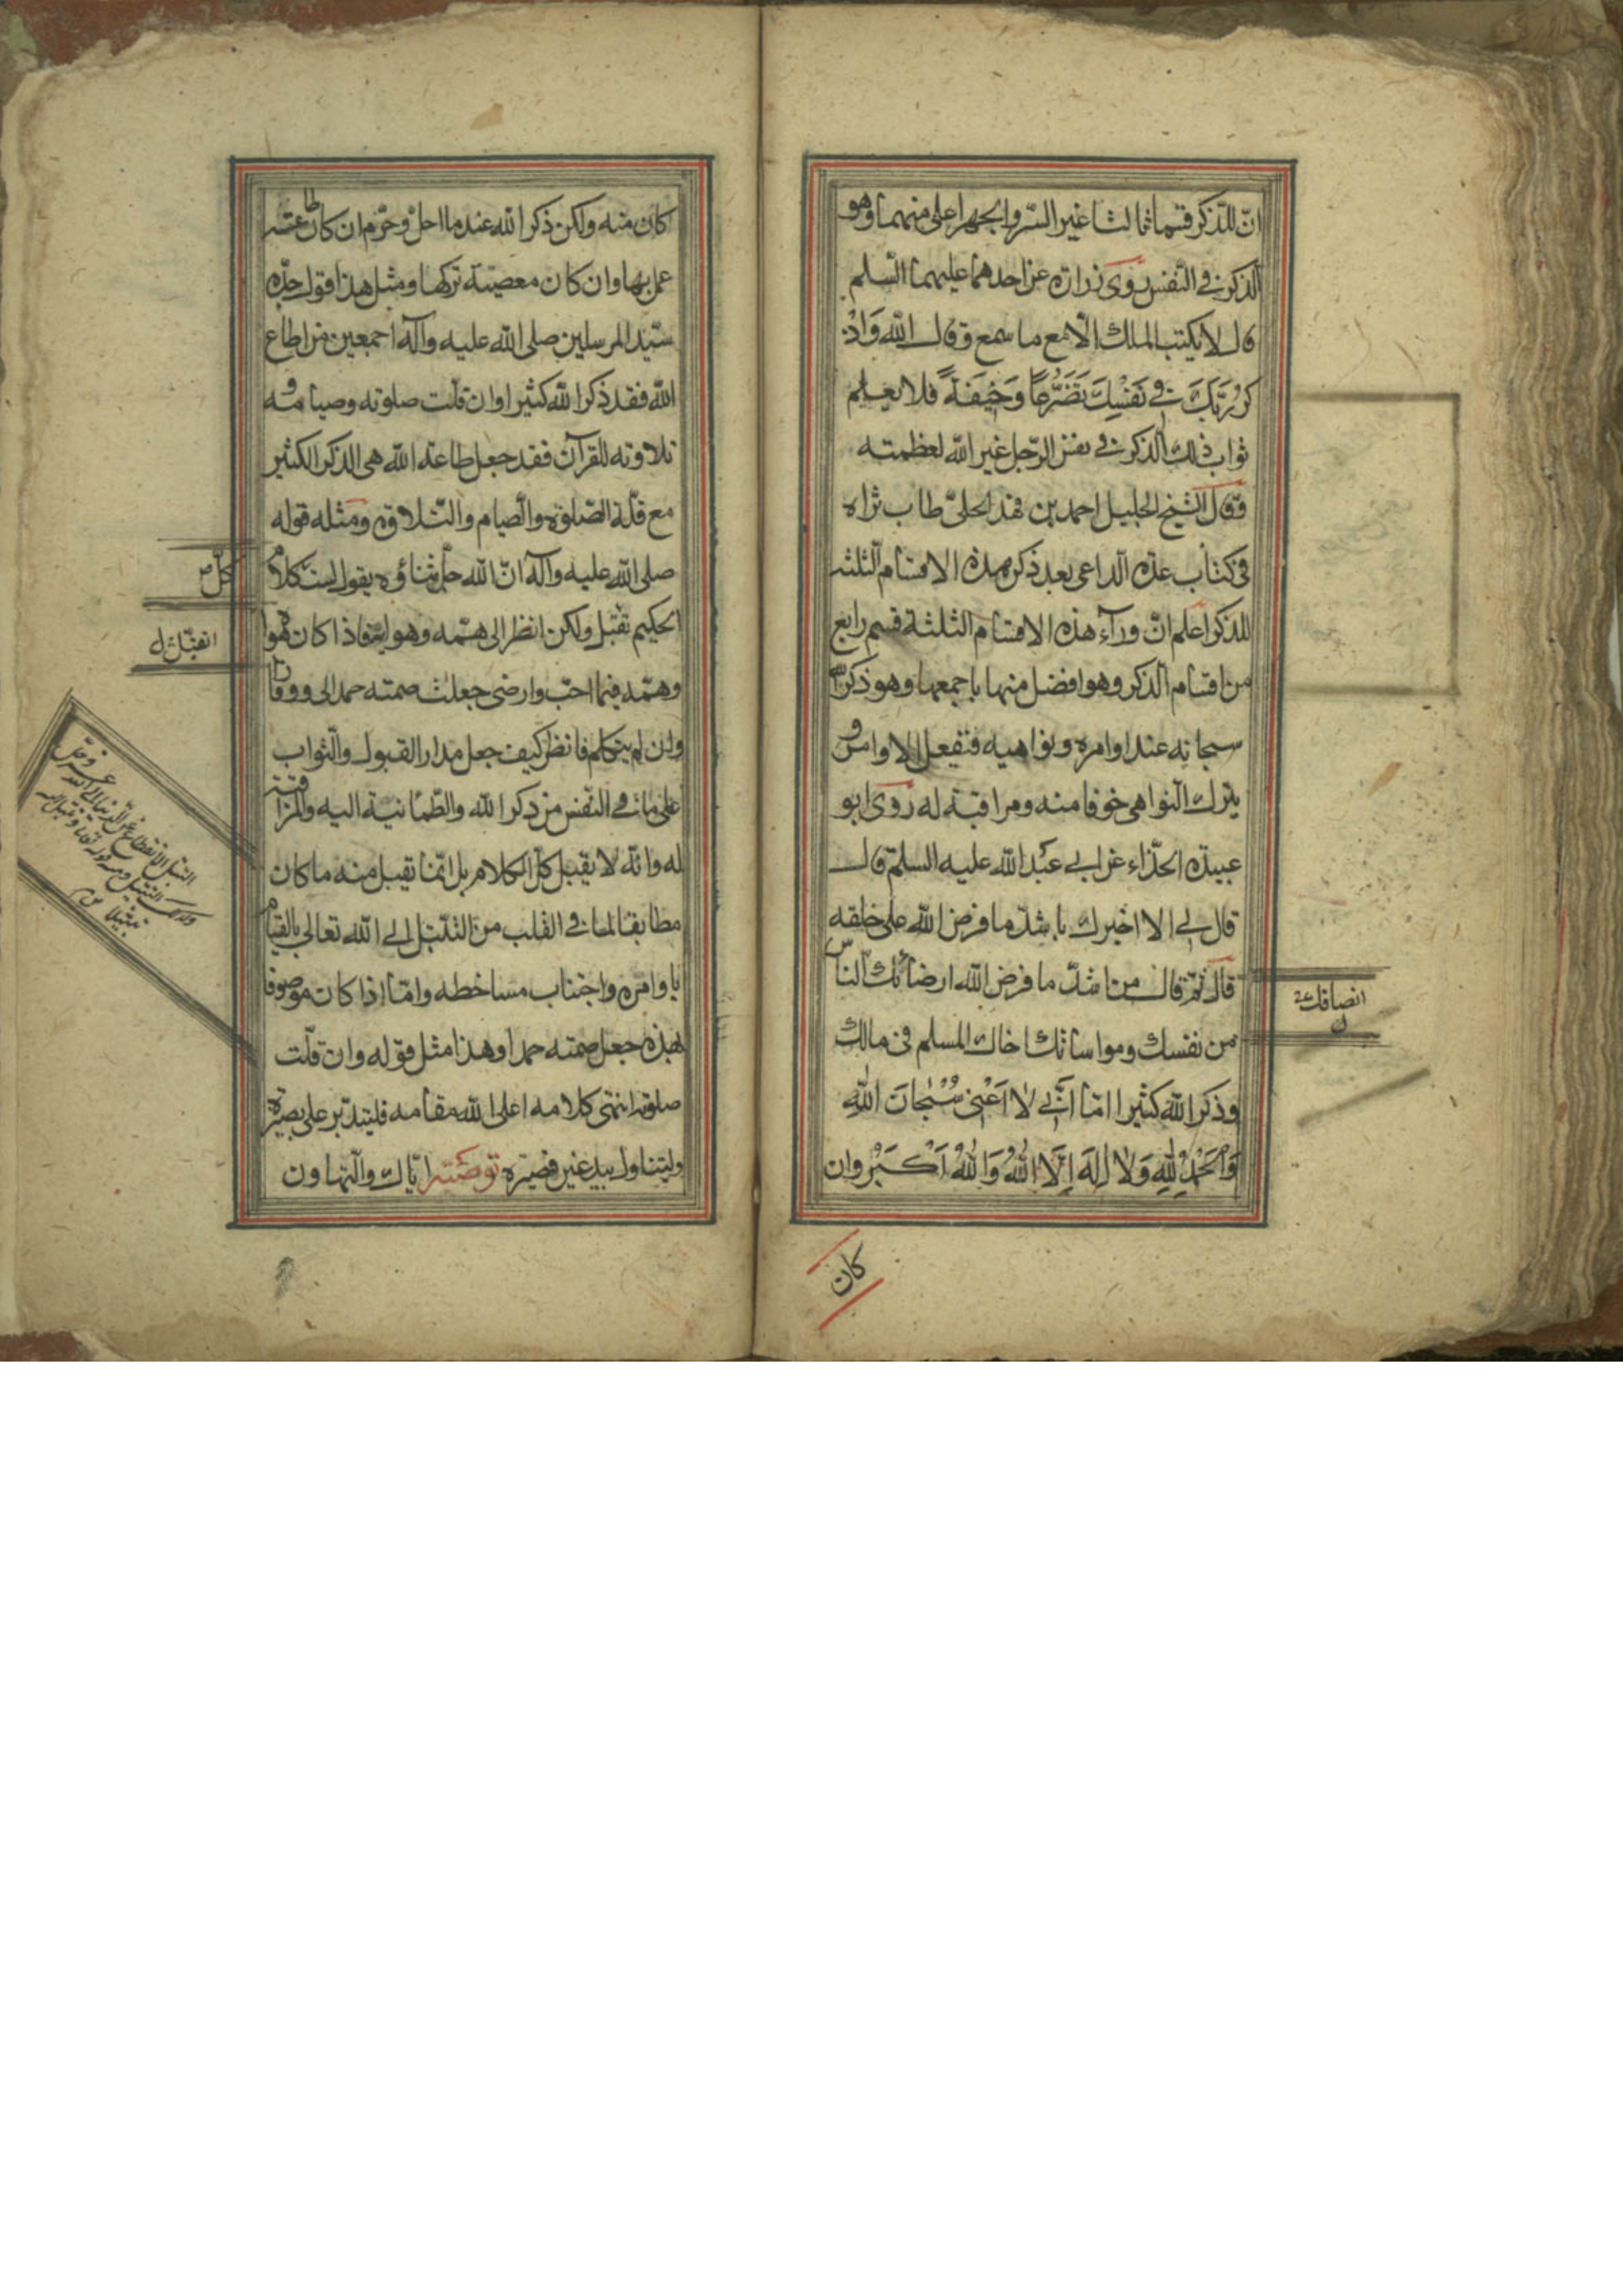 انّ للذّكر قسما ثالثا غير السّر والجهر اعلى منهما وهو
الذكر في النّفس روى زرارة عن احدهما عليهما السّلم
قال لا يكتب الملك الّا مع ما سمع وقال الله وَاذْ
كُرْ رَبَّكَ في نَفْسِكَ تَضَرُّعاً وَخيفَةً فلا يعلم
ثواب ذلك الذكر في نفس الرّجل غير الله لعظمته
وقال الشيخ الجليل احمد بن فهد الحلي طاب ثراه
في كتاب عدّة الداعي بعد ذكره هذه الاقسام الثلثة
للذكر اعلم انّ ورآء هذه الاقسام الثلثة قسم رابع
من اقسام الذكر وهو افضل منها باجمعها وهو ذكر الله
سبحانه عند اوامره ونواهيه فيفعل الاوامر و
يترك النواهي خوفا منه ومراقبة له روى ابو
عبيدة الحذّاء عن ابي عبد الله عليه السلم قال
قال لي الا اخبرك باشدّ ما فرض الله على خلقه
قال ثمّ قال من اشدّ ما فرض الله ارضائك الناس
من نفسك ومواساتك اخاك المسلم في مالك
وذكر الله كثيرا امّا انّي لا اَعْني سُبْحانَ اللهِ
وَالْحَمْدُ لِلّهِ وَلا اِلهَ اِلَّا اللهُ وَاللهُ اَكْبَرُ وان
انصافك
كان
كان منه ولكن ذكر الله عند ما احلّ وحرّم ان كان طاعة
عمل بها وان كان معصية تركها ومثل هذا قول جدّه
سيّد المرسلين صلى الله عليه وآله اجمعين من اطاع
الله فقد ذكر الله كثيرا وان قلّت صلوته وصيامه و
تلاوته للقرآن فقد جعل طاعة الله هي الذكر الكثير
مع قلّة الصّلوة والصيام والتّلاوة ومثله قوله
صلى الله عليه وآله انّ الله جلّ ثناؤه يقول لست كلام
الحكيم تقبّل ولكن انظر الى همّه وهواه فاذا كان هواه
وهمّه فيما احبّ وارضى جعلت صمته حمدا لي ووقارا
وان لم يتكلم فانظر كيف جعل مدار القبول والثواب
على ما في النّفس من ذكر الله والطّمانية اليه والمراقبة
له وانّه لا يقبل كلّ الكلام بل انّما تقبل منه ما كان
مطابقا لما في القلب من التبتّل الى الله تعالى بالقيام
باوامره واجتناب مساخطه وامّا اذا كان موصوفا
بهذه جعل صمته حمدا وهذا مثل قوله وان قلّت
صلوته انتهى كلامه اعلى الله مقامه فليتدبّر على بصيرة
وليتناول بيد غير قصيرة توصية ايّاك والتهاون
كلّ
التبتل الانقطاع عن الدنيا الى الله